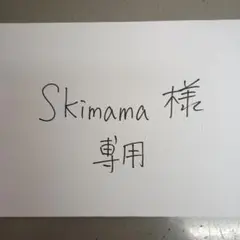 Skimama 様
専用